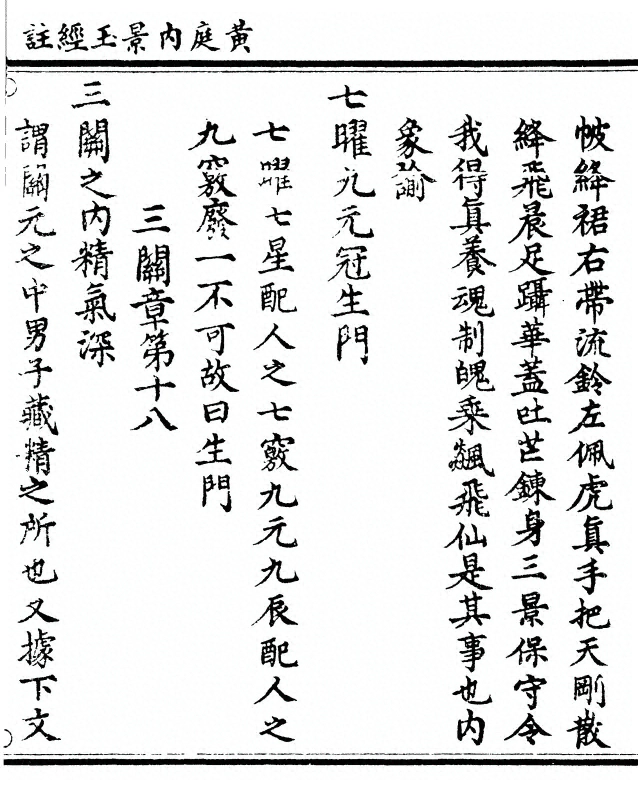 黃庭內景玉經註
帔絳裙右帶流鈴左佩虎眞手把天剛散
絳飛晨足躡華蓋吐芒鍊身三景保守令
我得眞養魂制魄乘飈飛仙是其事也內
象諭
七曜九元冠生門
七曜七星配人之七竅九元九辰配人之
九竅廢一不可故曰生門
三關章第十八
三關之內精氣深
謂關元之中男子藏精之所也又據下文